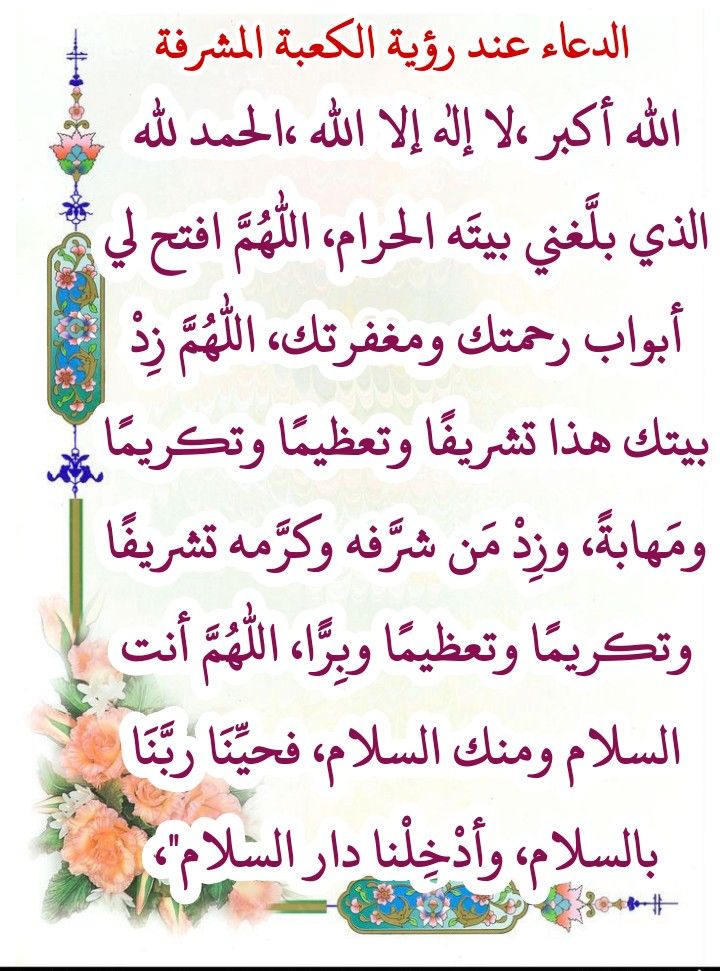 الدعاء عند رؤية الكعبة المشرفة
الله أكبر ،لا إلٰه إلا الله ،الحمد لله
الذي بلَّغني بيتَه الحرام، اللهُمَّ افتح لي
أبواب رحمتك ومغفرتك، اللهُمَّ زِدْ
بيتك هذا تشريفًا وتعظيمًا وتكريمًا
ومَهابةً، وزِدْ مَن شرَّفه وكرَّمه تشريفًا
وتكريمًا وتعظيمًا وبِرًّا، اللهُمَّ أنت
السلام ومنك السلام، فحيِّنَا ربَّنَا
بالسلام، وأدْخِلْنا دار السلام"،